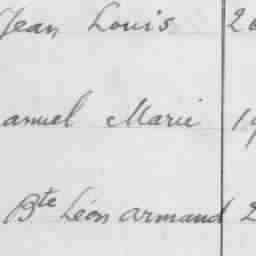 Jean Louis 26
anuel Marie 19
Bte Léon armand 2